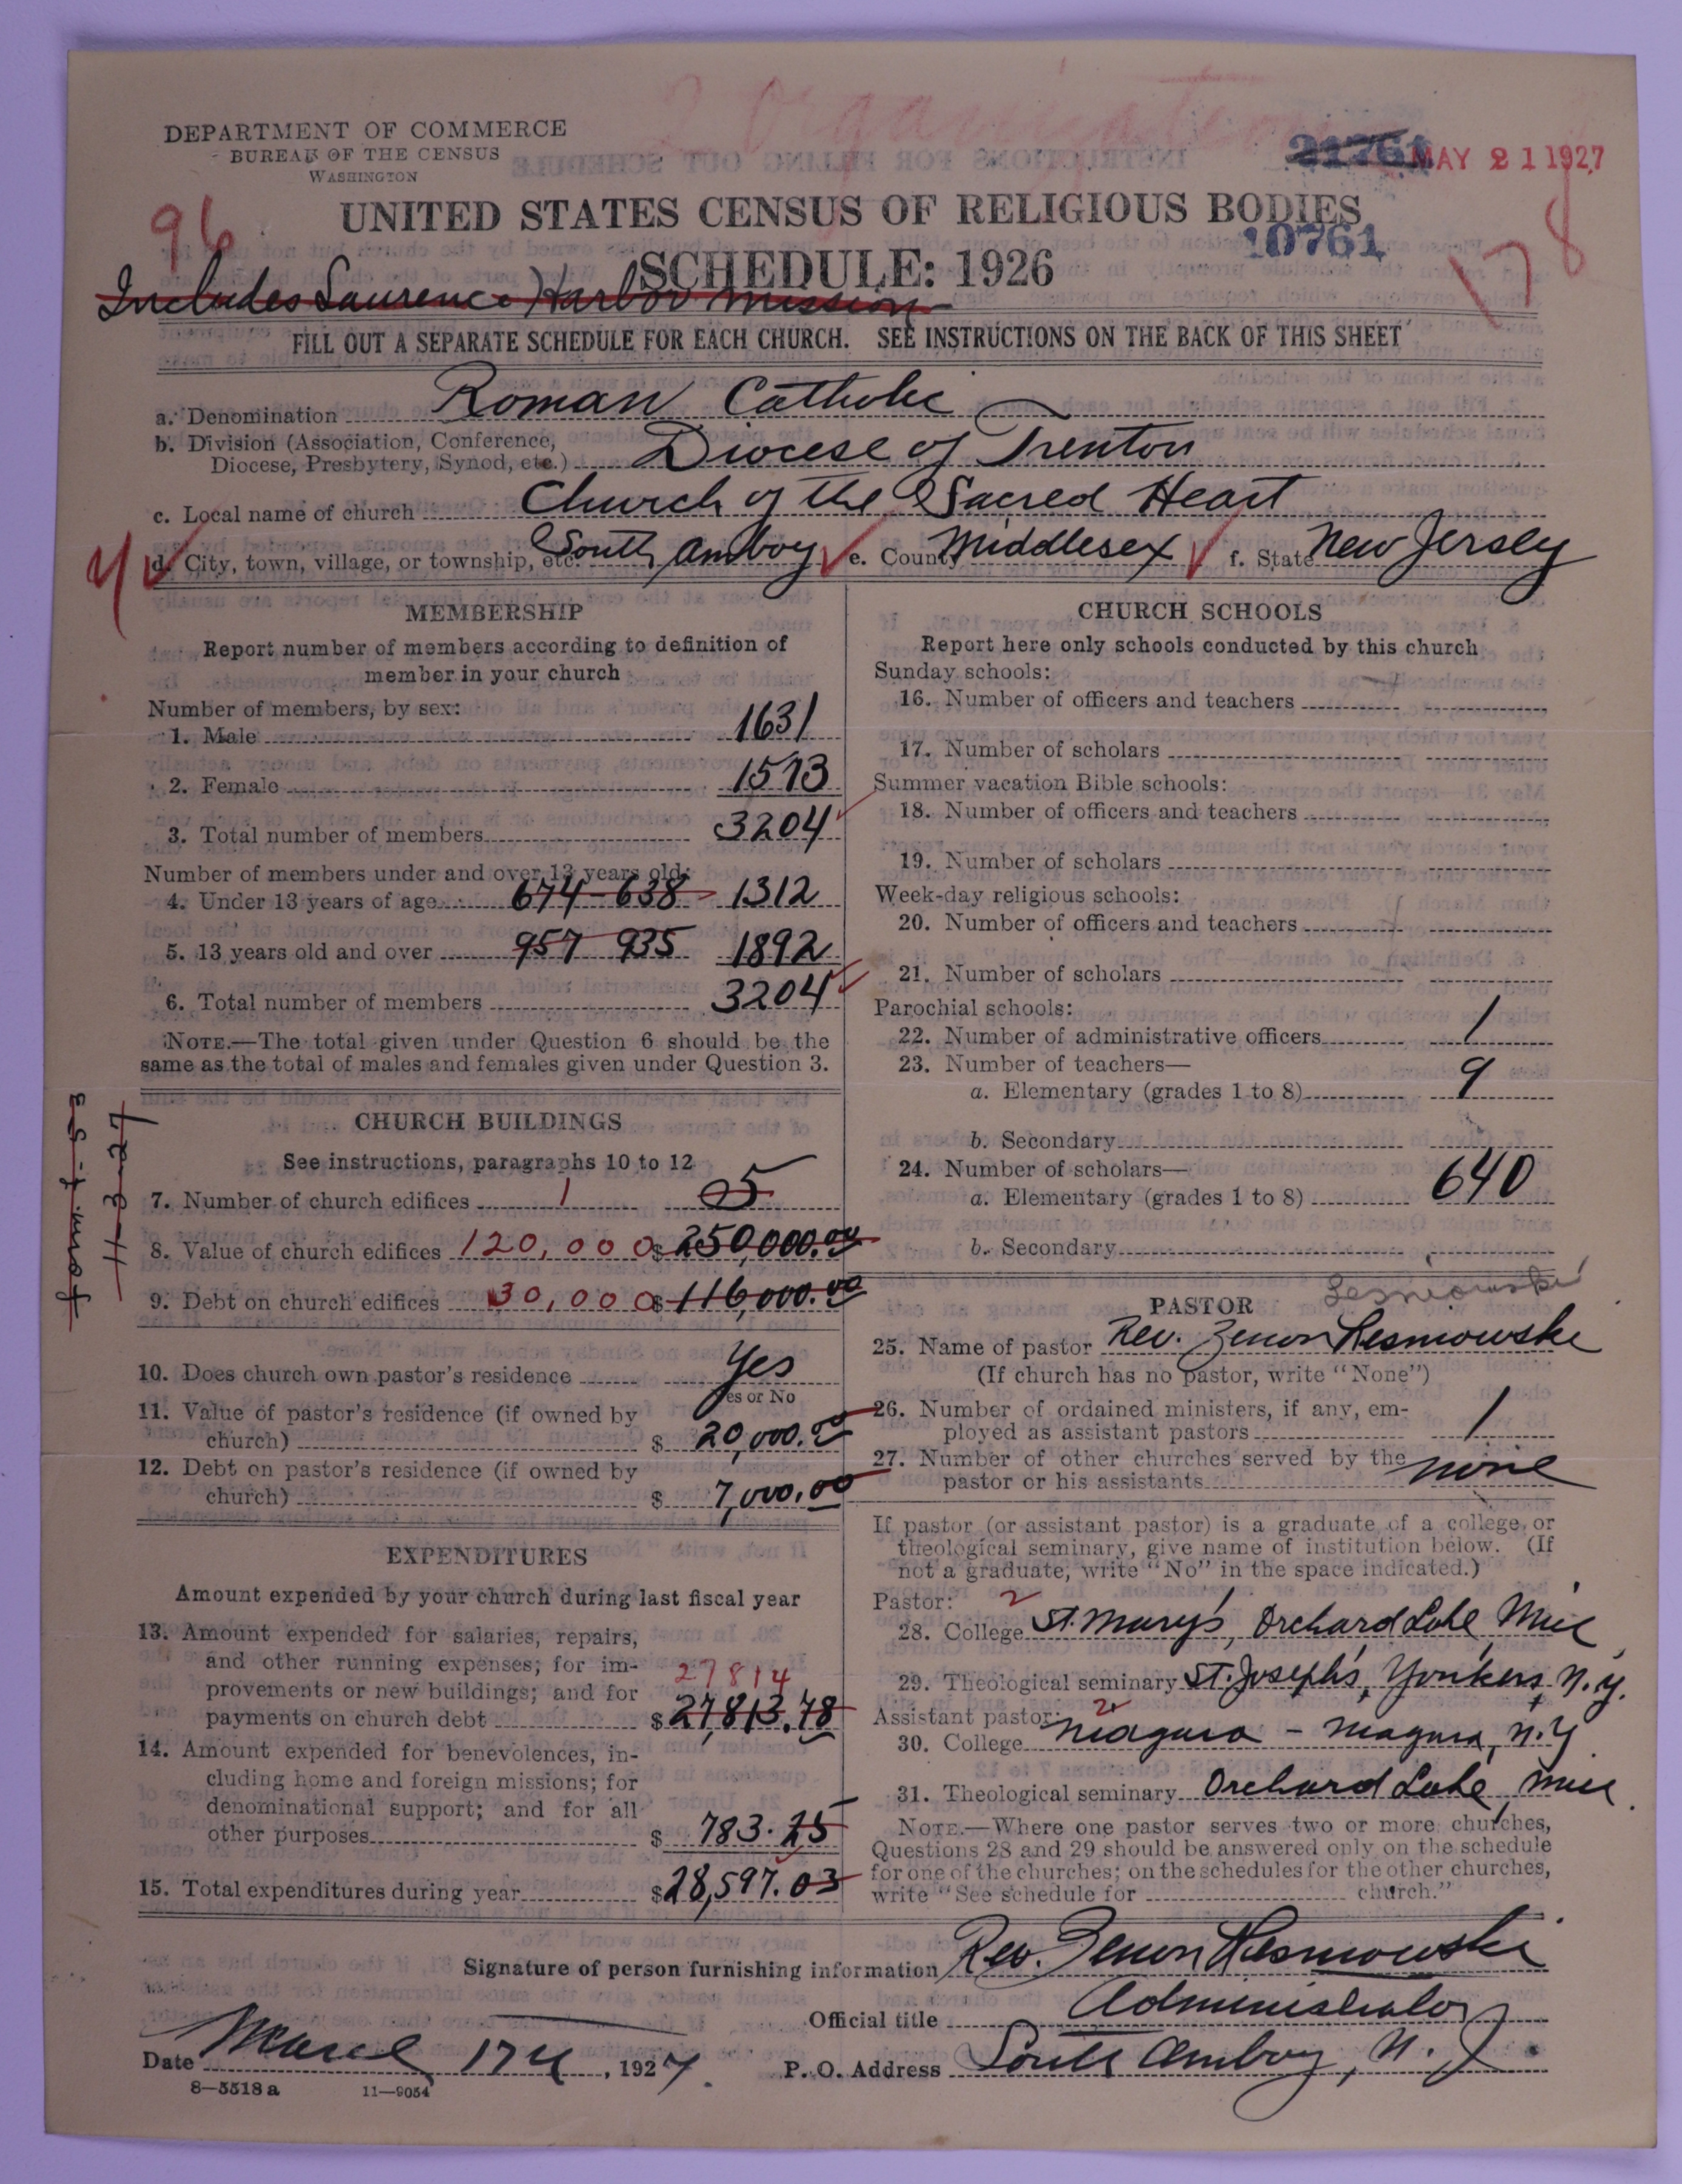 DEPARTMENT OF COMMERCE
BUREAU OF THE CENSUS
WASHINGTON
21761
MAY 21 1927
96
UNITED STATES CENSUS OF RELIGIOUS BODIES
10761
178
SCHEDULE: 1926
Includes Laurence Harbor mission
FILL OUT A SEPARATE SCHEDULE FOR EACH CHURCH. SEE INSTRUCTIONS ON THE BACK OF THIS SHEET
a. Denomination Roman Catholic
b. Division (Association, Conference,
Diocese, Presbytery, Synod, etc.) Diocese of Trenton
c. Local name of church Church of the Sacred Heart
d. City, town, village, or township, etc. South Amboy e. County Middlesex f. State New Jersey
MEMBERSHIP
Report number of members according to definition of
member in your church
Number of members, by sex:
1. Male 1631
2. Female 1573
3. Total number of members 3204
Number of members under and over 13 years old:
4. Under 13 years of age 674-638 1312
5. 13 years old and over 957 935 1892
6. Total number of members 3204
NOTE.—The total given under Question 6 should be the
same as the total of males and females given under Question 3.
CHURCH BUILDINGS
See instructions, paragraphs 10 to 12
7. Number of church edifices 1 5
8. Value of church edifices 120,000 $ 250,000.00
9. Debt on church edifices 30,000 $ 116,000.00
10. Does church own pastor's residence Yes
Yes or No
11. Value of pastor's residence (if owned by
church) $ 20,000.00
12. Debt on pastor's residence (if owned by
church) $ 7,000.00
11-3-27
EXPENDITURES
Amount expended by your church during last fiscal year
13. Amount expended for salaries, repairs,
and other running expenses; for im-
provements or new buildings; and for
27814
payments on church debt $ 27,813.78
14. Amount expended for benevolences, in-
cluding home and foreign missions; for
denominational support; and for all
other purposes $ 783.25
15. Total expenditures during year $ 28,597.03
CHURCH SCHOOLS
Report here only schools conducted by this church
Sunday schools:
16. Number of officers and teachers
17. Number of scholars
Summer vacation Bible schools:
18. Number of officers and teachers
19. Number of scholars
Week-day religious schools:
20. Number of officers and teachers
21. Number of scholars
Parochial schools:
22. Number of administrative officers 1
23. Number of teachers—
a. Elementary (grades 1 to 8) 9
b. Secondary
24. Number of scholars—
a. Elementary (grades 1 to 8) 640
b. Secondary
PASTOR Lesniowski
25. Name of pastor Rev. Zenon Lesniowski
(If church has no pastor, write "None")
26. Number of ordained ministers, if any, em-
ployed as assistant pastors 1
27. Number of other churches served by the
pastor or his assistants none
If pastor (or assistant pastor) is a graduate of a college or
theological seminary, give name of institution below. (If
not a graduate, write "No" in the space indicated.)
Pastor: 2
28. College St. Mary's, Orchard Lake, Mic
29. Theological seminary St. Joseph's, Yonkers, N.Y.
Assistant pastor: 2
30. College Niagara - Niagara, N.Y
31. Theological seminary Orchard Lake, Mic
NOTE.—Where one pastor serves two or more churches,
Questions 28 and 29 should be answered only on the schedule
for one of the churches; on the schedules for the other churches,
write "See schedule for church."
Signature of person furnishing information Rev. Zenon Lesniowski
Official title Administrator
Date March 17th, 1927. P. O. Address South Amboy, N. J.
8—5518 a 11—9054